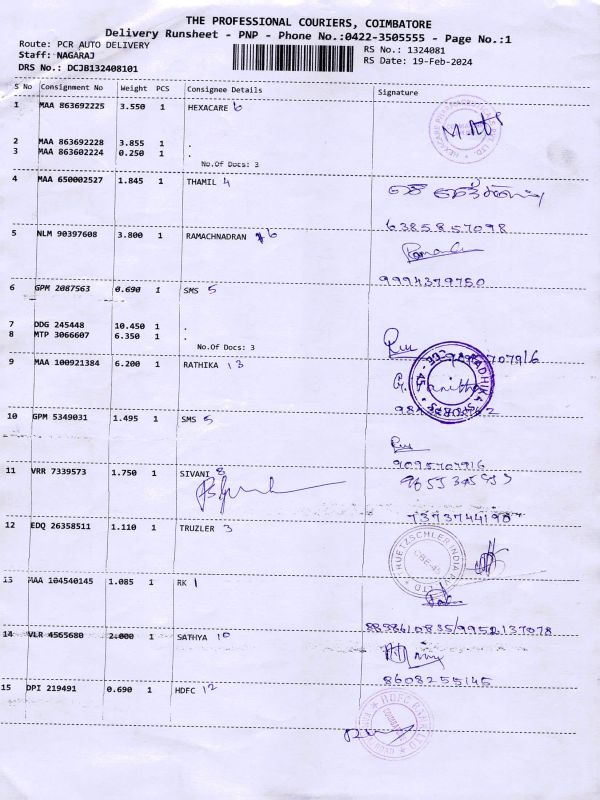 THE PROFESSIONAL COURIERS, COIMBATORE
Delivery Runsheet - PNP - Phone No.:0422-3505555 - Page No.:1
Route: PCR AUTO DELIVERY
RS No.: 1324081
Staff: NAGARAJ
RS Date: 19-Feb-2024
DRS No.: DCJB132408101
S No Consignment No Weight PCS Consignee Details Signature
1 MAA 863692225 3.550 1 HEXACARE 6
2 MAA 863692228 3.855 1 .
3 MAA 863602224 0.250 1 .
No.Of Docs: 3
4 MAA 650002527 1.845 1 THAMIL 4
6385857098
5 NLM 90397608 3.800 1 RAMACHNADRAN 6
9994379750
6 GPM 2087563 0.690 1 SMS 5
7 DDG 245448 10.450 1 .
8 MTP 3066607 6.350 1 .
No.Of Docs: 3
9 MAA 100921384 6.200 1 RATHIKA 13
10 GPM 5349031 1.495 1 SMS 5
9095707916
11 VRR 7339573 1.750 1 SIVANI 8
7373744190
12 EDQ 26358511 1.110 1 TRUZLER 3
13 MAA 104540145 1.085 1 RK 1
8838610835/9952137078
14 VLR 4565680 2.000 1 SATHYA 10
8608255145
15 DPI 219491 0.690 1 HDFC 12